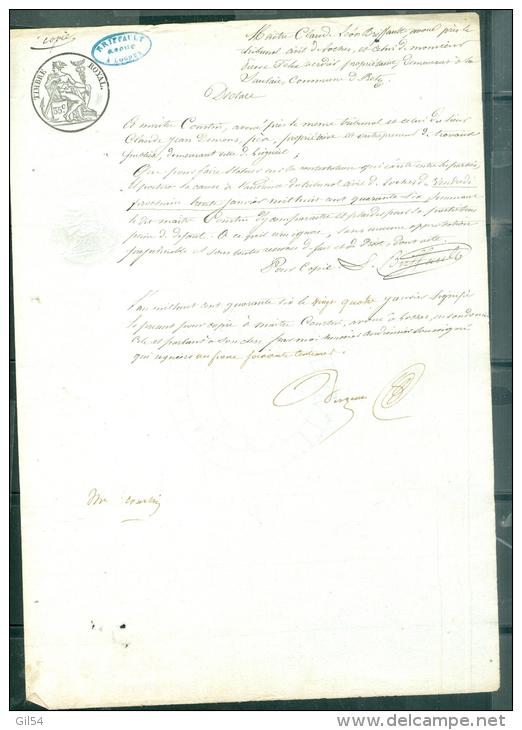 Copie
BRIFFAULT
AVOUÉ
A LOCHES
TIMBRE ROYAL
35c
Maître Claude Léon Briffault avoué près le
tribunal civil de Loches, et celui de monsieur
Pierre Félix Verdier propriétaire, demeurant à la
Saulaie, Commune de Betz
Déclare
A maître Courtin, avoué près le même tribunal et celui du Sieur
Claude Jean propriétaire et entrepreneur de travaux
publics, demeurant ville de Ligueil,
Que pour faire statuer sur la contestation qui existe entre les parties,
il portera la cause à l'audience du tribunal civil de Loches de vendredi
prochain trente janvier mil huit cent quarante six, sommant
le dit maître Courtin d'y comparaître et plaider sous la protestation
peine de défaut. A ce qu'il n'en ignore, sans aucune approbation
préjudiciable et sous toutes réserves de fait et de droit, Dont acte
Pour Copie L. Briffault
L'an mil huit cent quarante six le vingt quatre janvier signifié
le présent pour copie à maître Courtin, avoué à Loches, en son domicile
et parlant à son clerc, par moi huissier audiencier soussigné
qui requiers un franc
Me Courtin
Gil54
www.delcampe.net